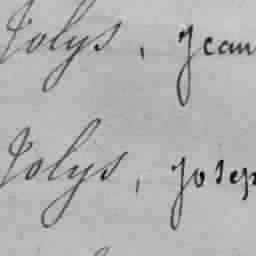 Jolys, Jean
Jolys, Josep